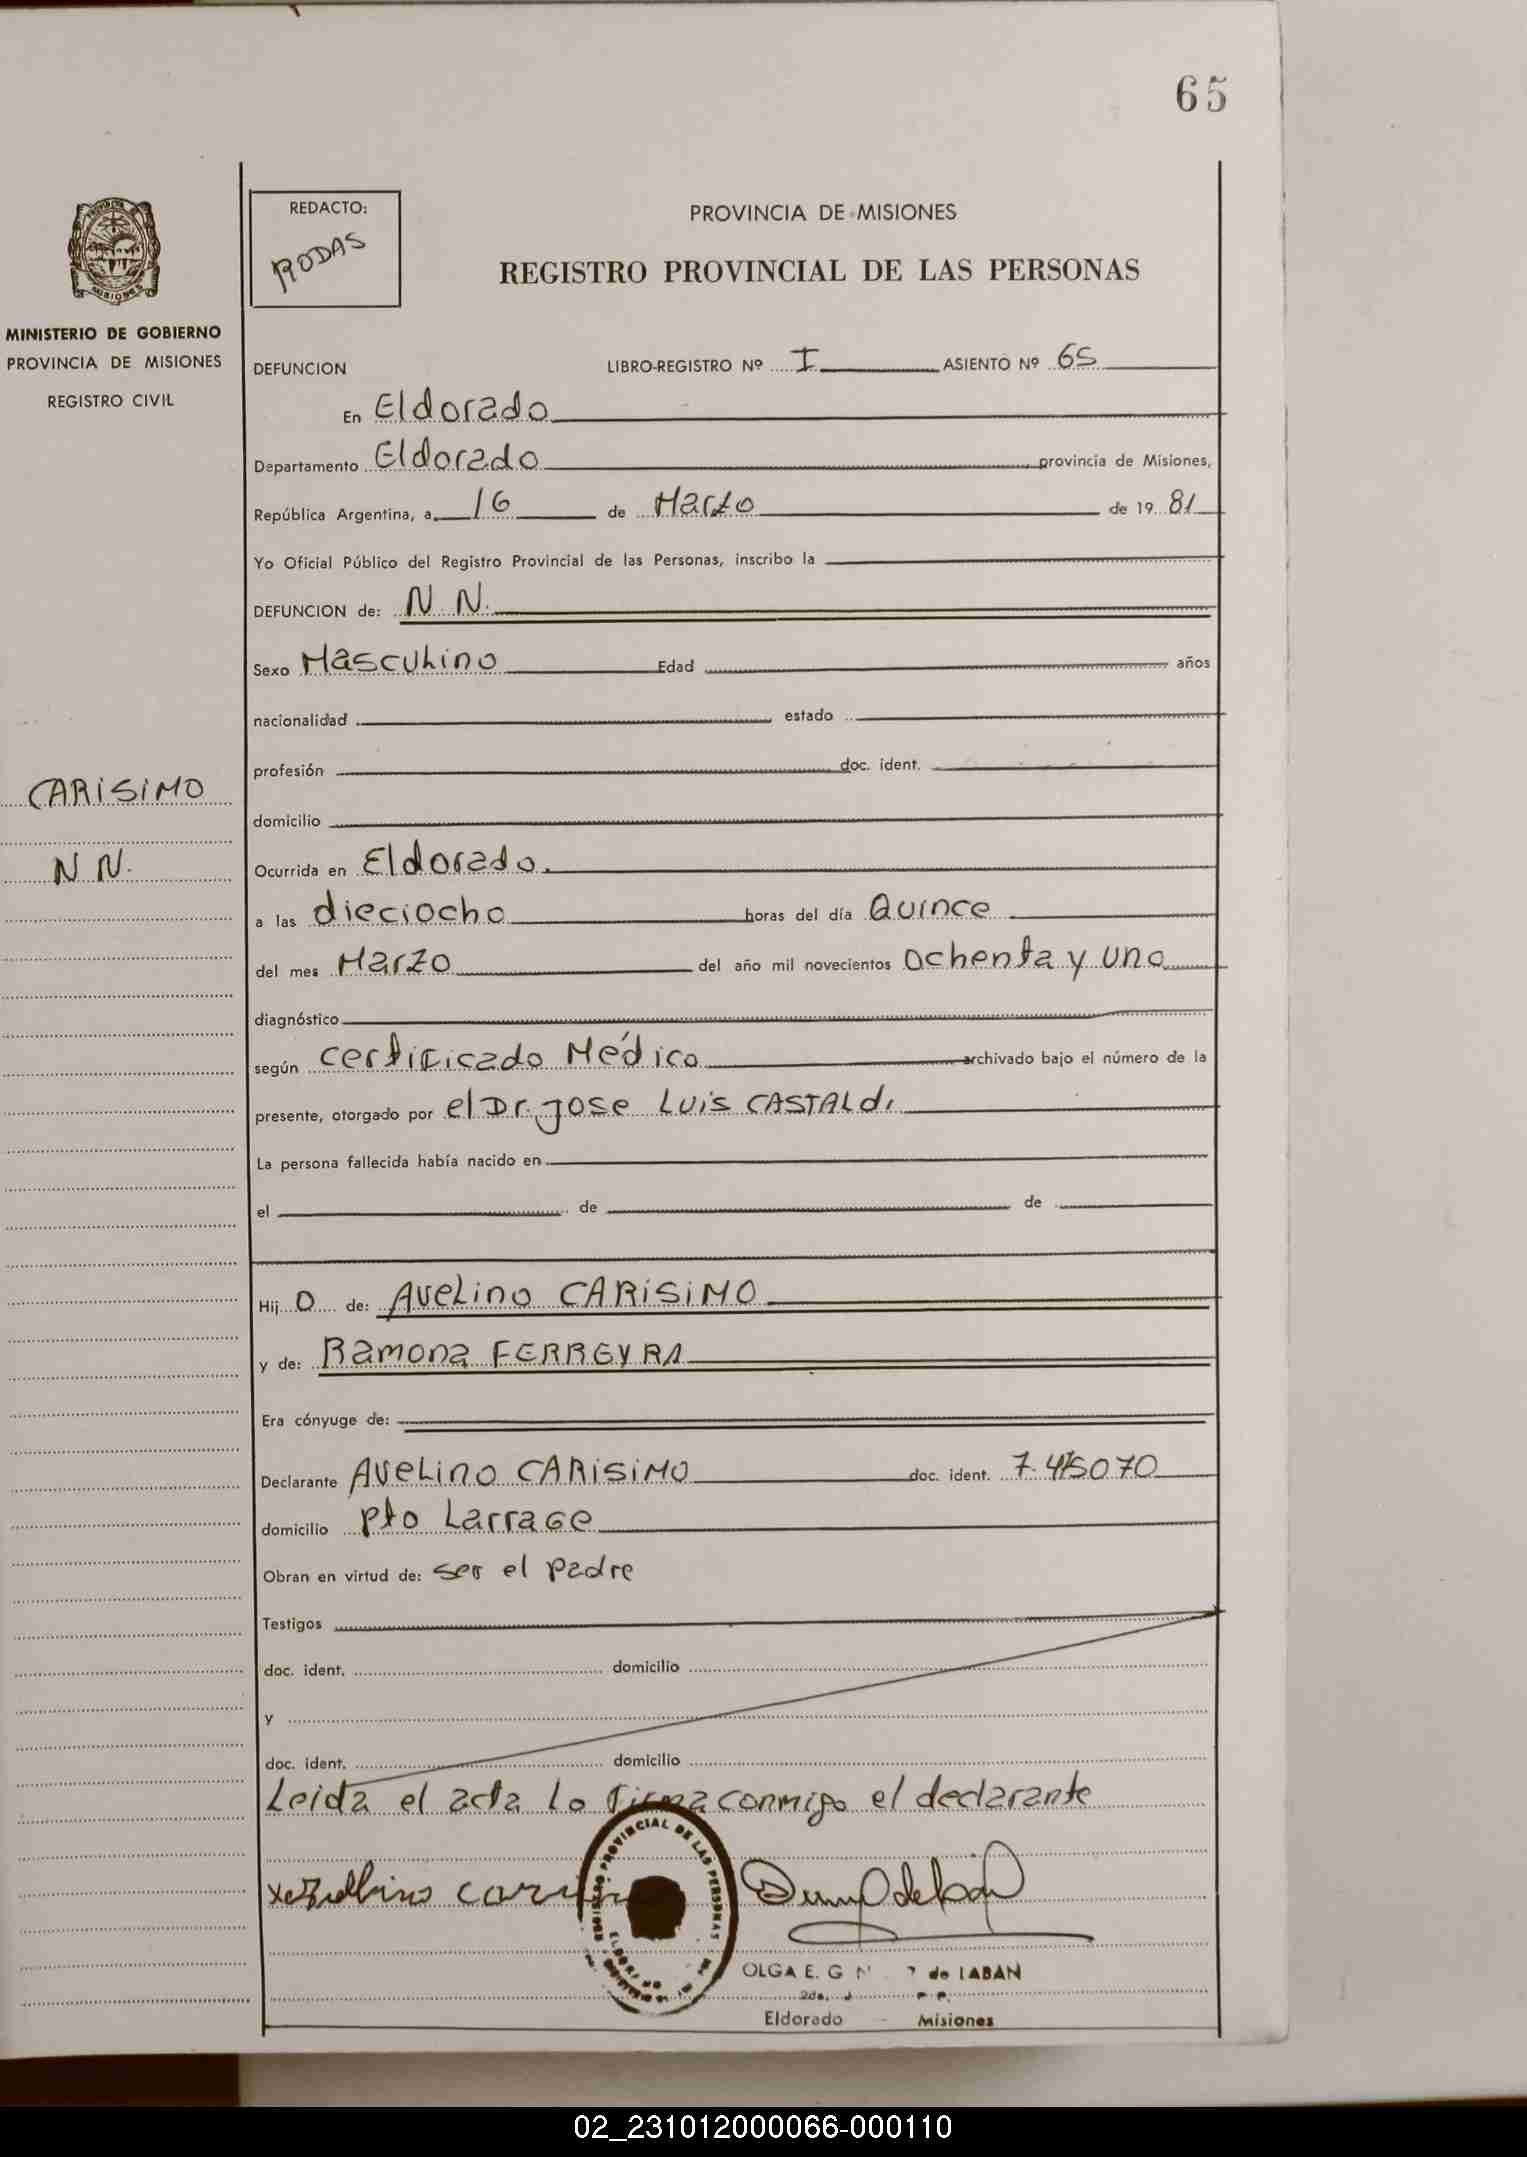 65
REDACTO:
RODAS
PROVINCIA DE MISIONES
REGISTRO PROVINCIAL DE LAS PERSONAS
MINISTERIO DE GOBIERNO
PROVINCIA DE MISIONES
REGISTRO CIVIL
DEFUNCION LIBRO-REGISTRO Nº I ASIENTO Nº 65
En Eldorado
Departamento Eldorado provincia de Misiones,
República Argentina, a 16 de Marzo de 19 81
Yo Oficial Público del Registro Provincial de las Personas, inscribo la
DEFUNCION de: N N.
Sexo Masculino Edad años
nacionalidad estado
profesión doc. ident.
CARISIMO
domicilio
N N.
Ocurrida en Eldorado.
a las dieciocho horas del día Quince
del mes Marzo del año mil novecientos Ochenta y uno
diagnóstico
según certificado Médico archivado bajo el número de la
presente, otorgado por el Dr. Jose Luis CASTALdi
La persona fallecida había nacido en
el de de
Hij o de: Avelino CARISIMO
y de: Ramona FERREYRA
Era cónyuge de:
Declarante Avelino CARISIMO doc. ident.
domicilio pto Larrage
Obran en virtud de: ser el padre
Testigos
doc. ident. domicilio
y
doc. ident. domicilio
Leida el acta lo firma conmigo el declarante
REGISTRO PROVINCIAL DE LAS PERSONAS
OLGA E. G de LABAN
Eldorado - Misiones
02_231012000066-000110